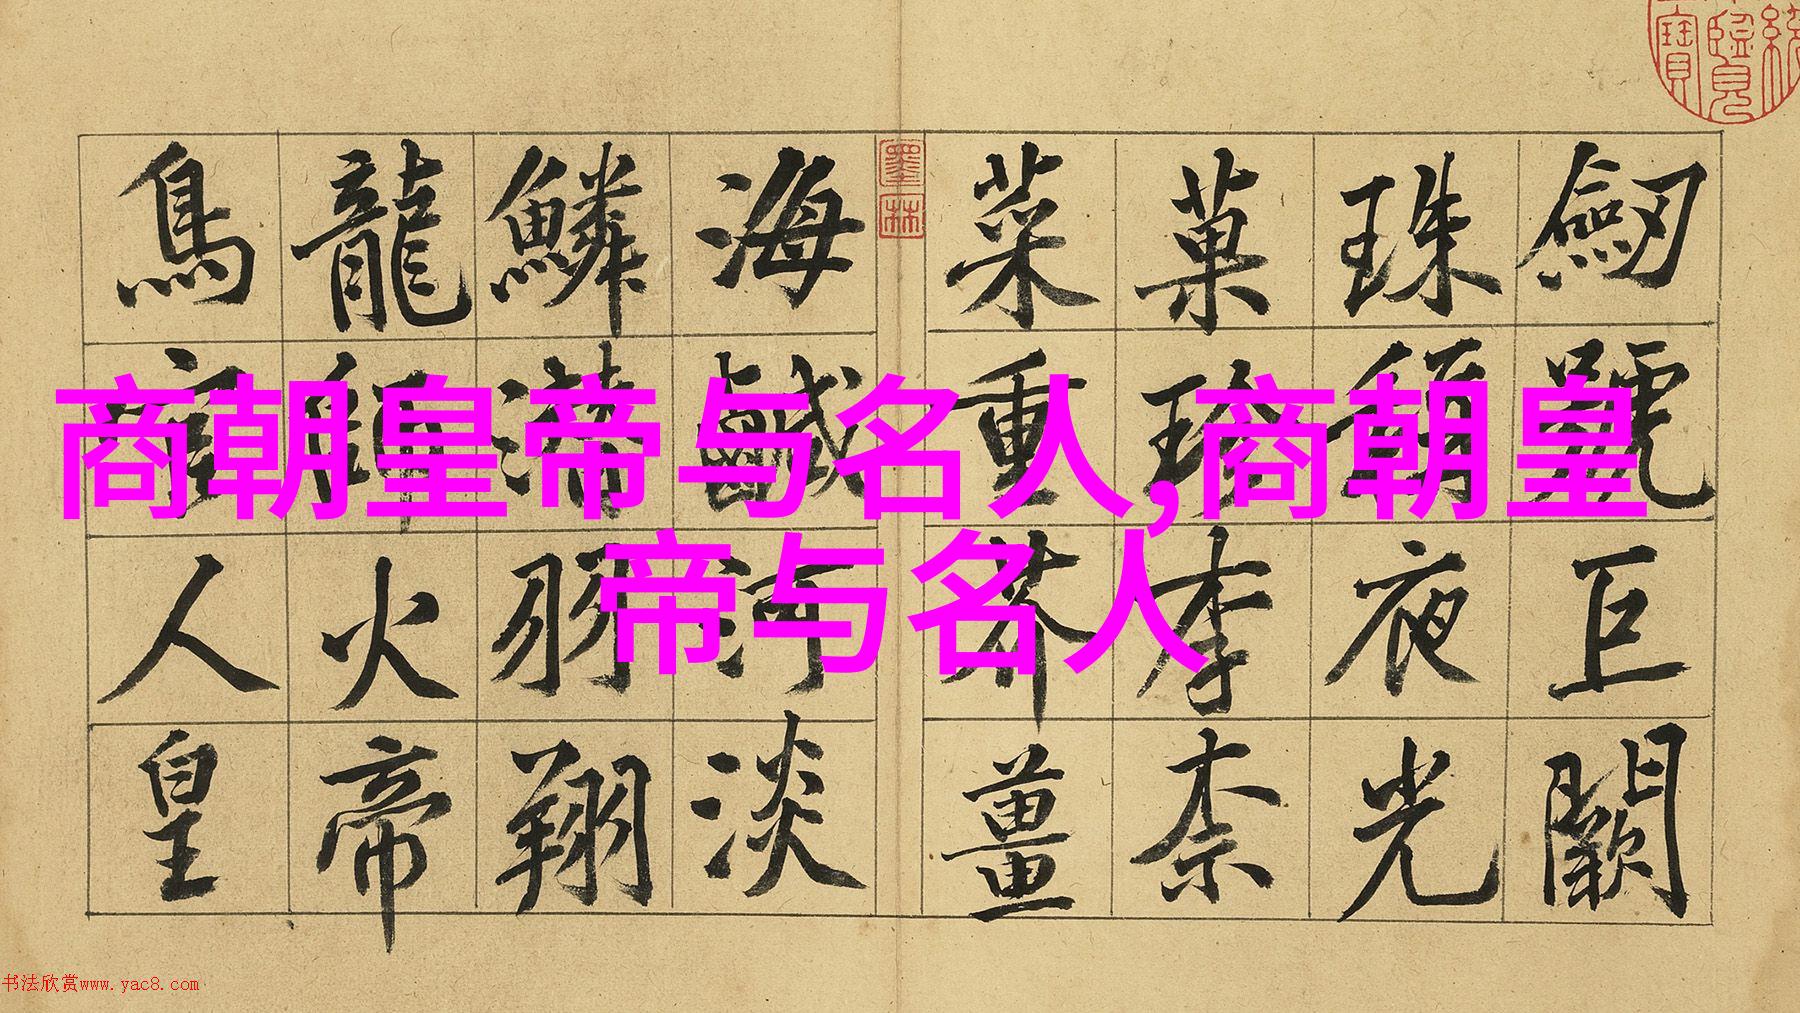 商朝皇帝与名人,商朝皇
帝与名人
劒號巨闕
珠稱夜光
菓珍李柰
菜重芥薑
墨林
海鹹河淡
鱗潛羽翔
龍師火帝
鳥官人皇
书法欣赏www.yac8.com